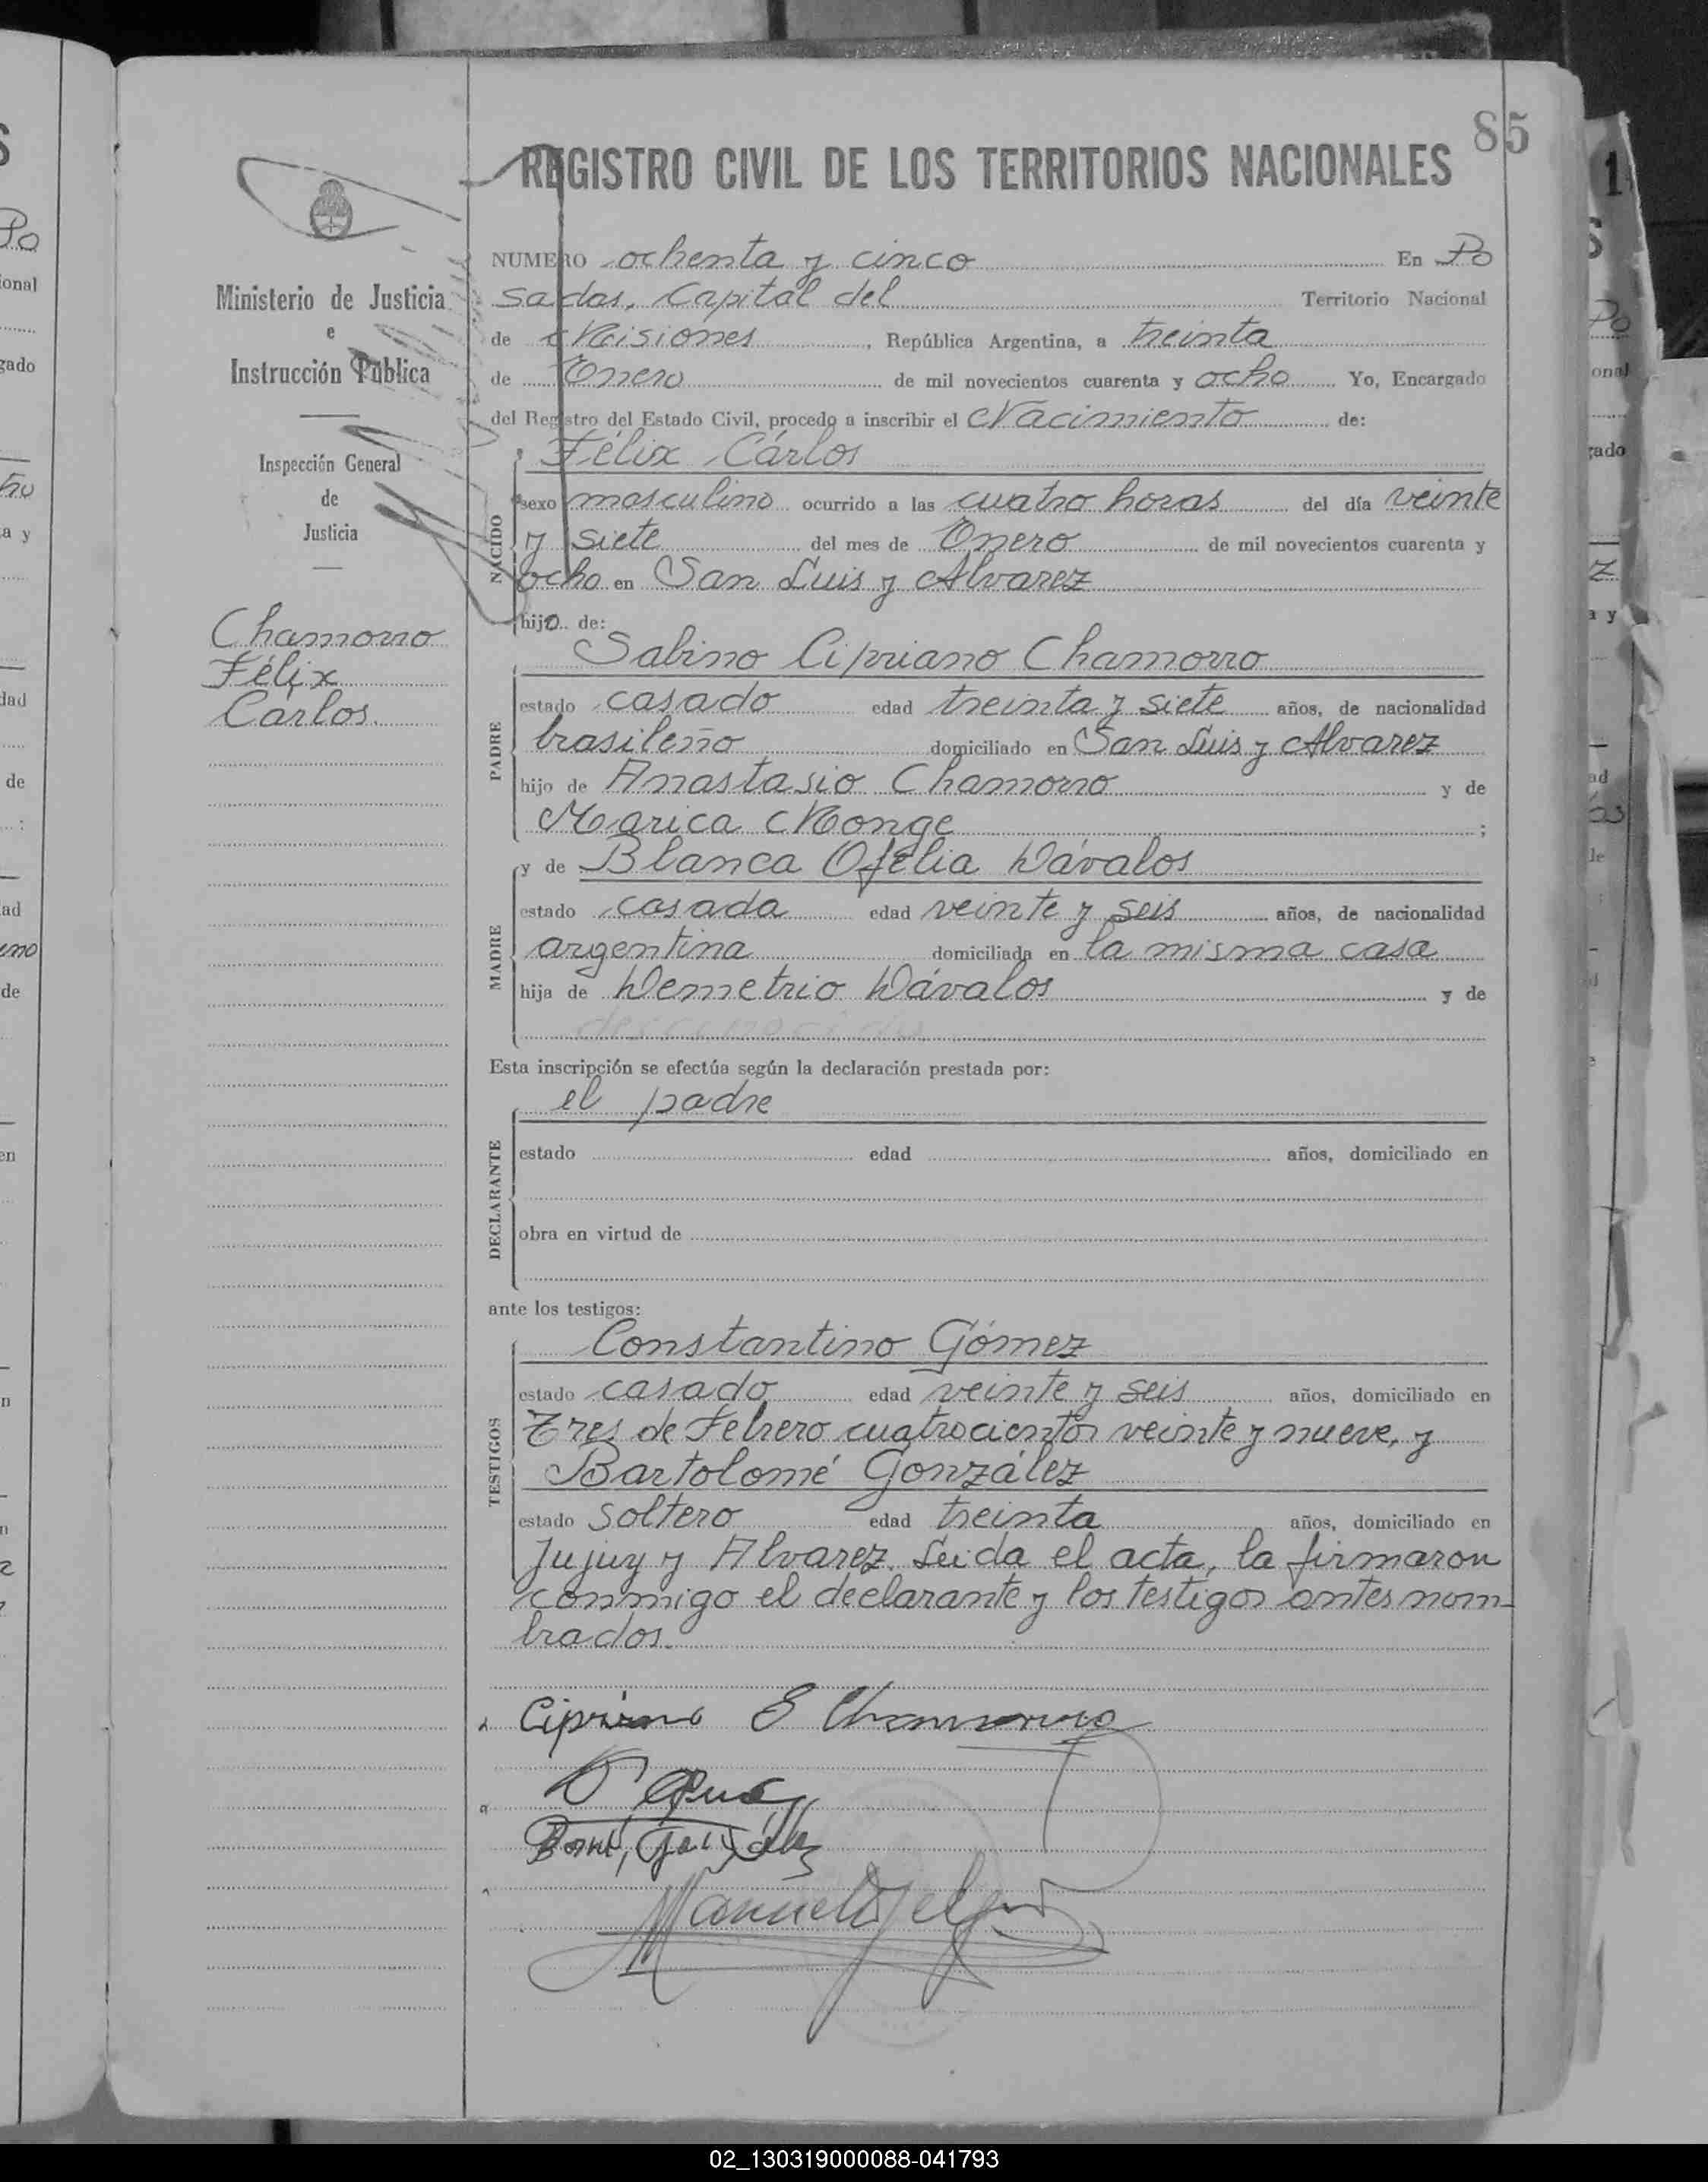 85
REGISTRO CIVIL DE LOS TERRITORIOS NACIONALES
Ministerio de Justicia
e
Instrucción Pública
Inspección General
de
Justicia
Chamorro
Félix
Carlos.
NUMERO ochenta y cinco En Po
sadas, Capital del Territorio Nacional
de Misiones, República Argentina, a treinta
de Enero de mil novecientos cuarenta y ocho Yo, Encargado
del Registro del Estado Civil, procedo a inscribir el Nacimiento de:
Félix Cárlos
NACIDO
sexo masculino ocurrido a las cuatro horas del día veinte
y siete del mes de Enero de mil novecientos cuarenta y
ocho en San Luis y Alvarez
hijo de:
Sabino Cipriano Chamorro
PADRE
estado casado edad treinta y siete años, de nacionalidad
brasileño domiciliado en San Luis y Alvarez
hijo de Anastasio Chamorro y de
Marica Monge ;
y de Blanca Ofelia Dávalos
MADRE
estado casada edad veinte y seis años, de nacionalidad
argentina domiciliada en la misma casa
hija de Demetrio Dávalos y de
Esta inscripción se efectúa según la declaración prestada por:
el padre
DECLARANTE
estado edad años, domiciliado en
obra en virtud de
ante los testigos:
Constantino Gómez
TESTIGOS
estado casado edad veinte y seis años, domiciliado en
Tres de Febrero cuatrocientos veinte y nueve, y
Bartolomé González
estado soltero edad treinta años, domiciliado en
Jujuy y Alvarez. Leida el acta, la firmaron
conmigo el declarante y los testigos antes nom-
brados.
Cipriano S Chamorro
02_130319000088-041793